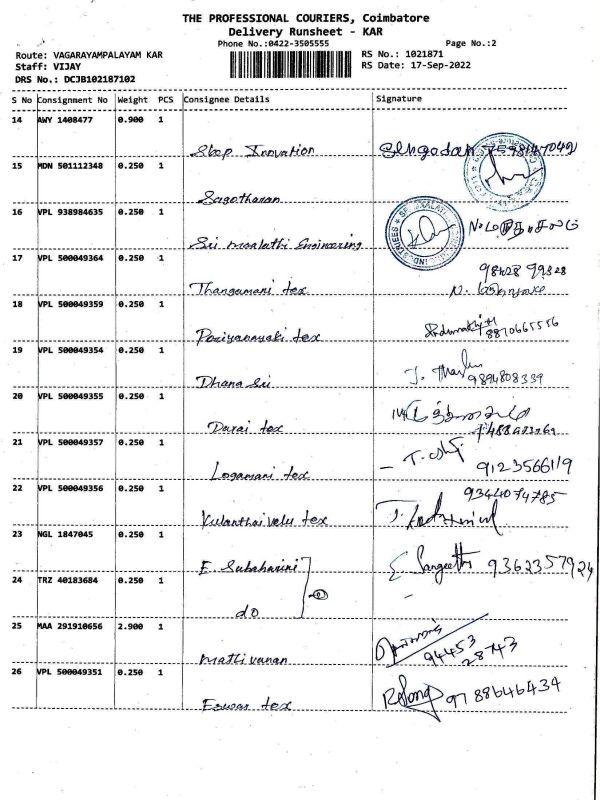 THE PROFESSIONAL COURIERS, Coimbatore
Delivery Runsheet - KAR
Phone No.:0422-3505555 Page No.:2
Route: VAGARAYAMPALAYAM KAR RS No.: 1021871
Staff: VIJAY RS Date: 17-Sep-2022
DRS No.: DCJB102187102
S No Consignment No Weight PCS Consignee Details Signature
14 AWY 1408477 0.900 1
Step Inovation
15 MDN 501112348 0.250 1
Sagotharan
16 VPL 938984635 0.250 1
Sri Maalathi Engineering
17 VPL 500049364 0.250 1
98428 99828
Thangamani tex
18 VPL 500049359 0.250 1
Periyannyaki tex 8870665556
19 VPL 500049354 0.250 1
Dhana Sri 9894808339
20 VPL 500049355 0.250 1
Durai tex
21 VPL 500049357 0.250 1
Logamani tex 9123566119
22 VPL 500049356 0.250 1
9344074785
Kulanthaivelu tex
23 NGL 1847045 0.250 1
E. Subaharini E. Sangeetha 9362357924
24 TRZ 40183684 0.250 1
do
25 MAA 291910656 2.900 1
94453
28743
Mathivanan
26 VPL 500049351 0.250 1
Eswar tex 9788646434